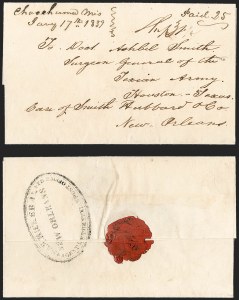 Paid 25
Jany 17th 1839
To Doct Ashbel Smith
Surgeon General of the
Texian Army.
Houston - Texas.
Care of Smith Hubbard & Co
New Orleans.
NEW ORLEANS